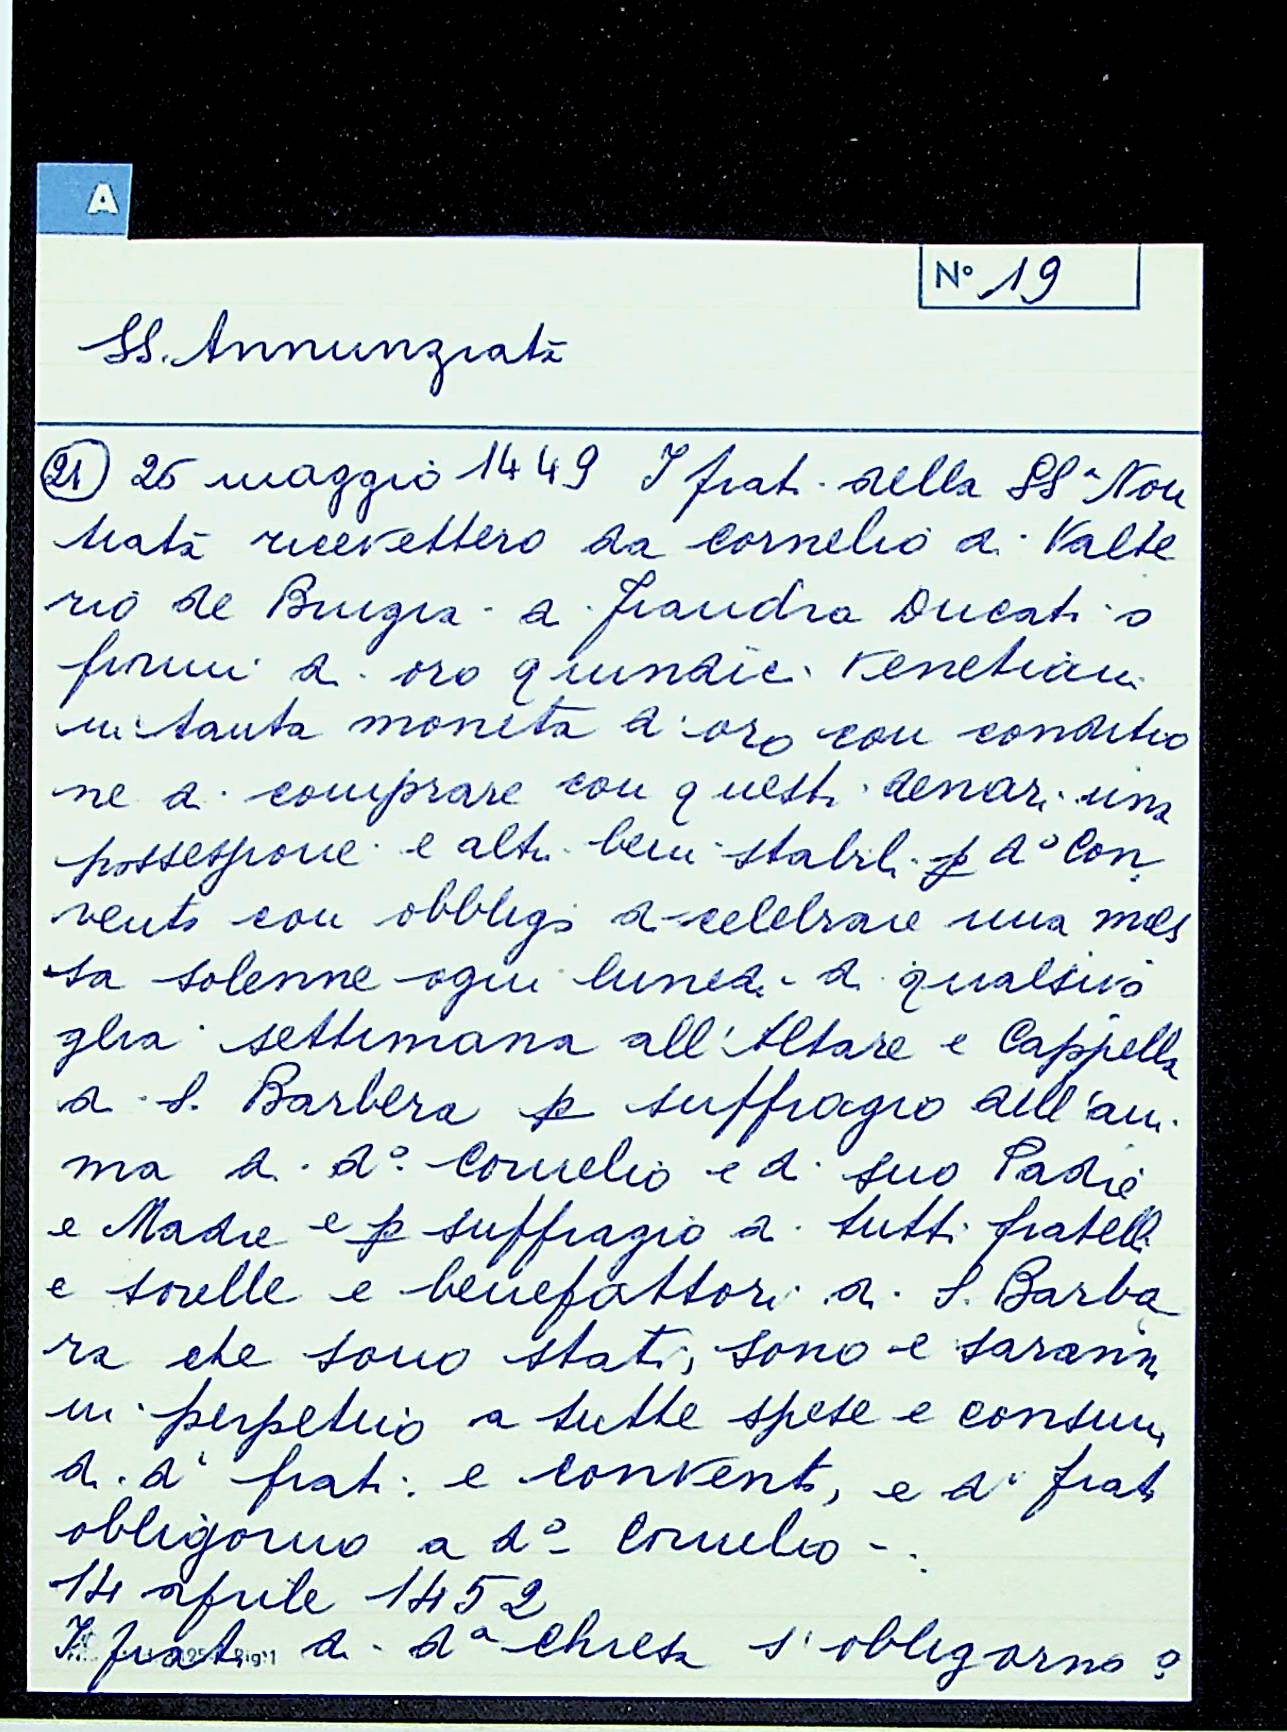 A
N° 19
SS. Annunziata
(21) 26 maggio 1449 I frati della SS.a Non
tiata ricevettero da Cornelio di Valte
rio de Brugia di Fiandra Ducati o
fiorini di oro quindici Venetiani
in tanta moneta d'oro con conditio
ne di comprare con questi denari una
possessione e altri beni stabili p do Con
vento con obbligo di celebrare una mes
sa solenne ogni lunedi di qualsivo
glia settimana all'Altare e Cappella
di S. Barbera p suffragio dell'ani
ma di do Cornelio e di suo Padre
e Madre e p suffragio di tutti fratelli
e sorelle e benefattori di S. Barba
ra che sono stati, sono e saranno
in perpetuo a tutte spese e consumi
di di frati e convento, e di frati
obligorno a do Cornelio -.
14 aprile 1452
I frati di da Chiesa s'obligorno a